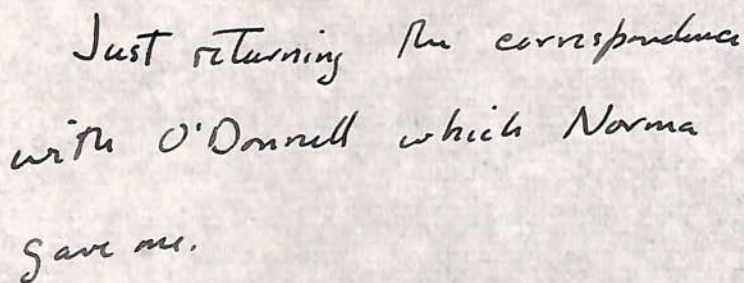 Just returning the correspondence
with O'Donnell which Norma
gave me.